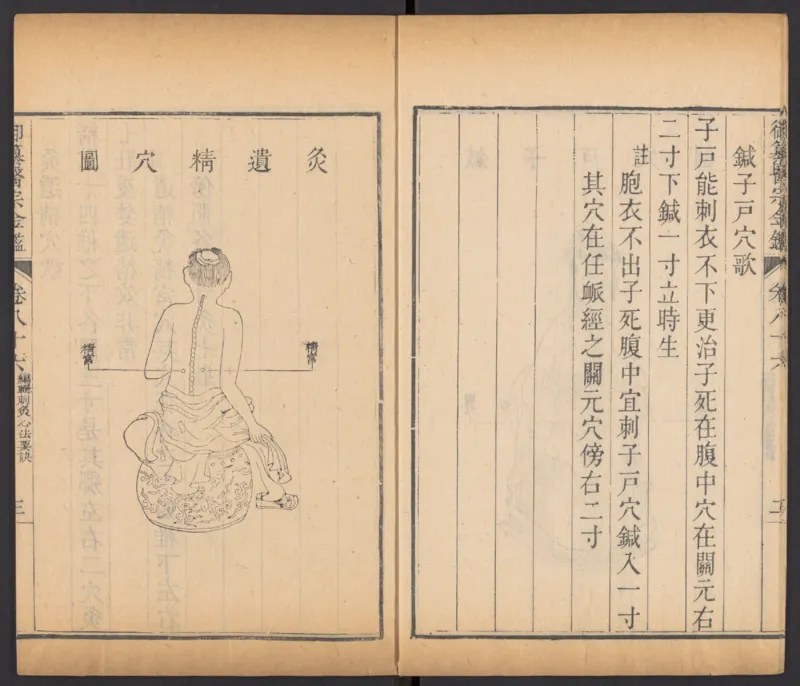 御纂醫宗金鑑
卷八十六
鍼子戸穴歌
子戸能刺衣不下更治子死在腹中穴在關元右
二寸下鍼一寸立時生
註
胞衣不出子死腹中宜刺子戸穴鍼入一寸
其穴在任脈經之關元穴傍右二寸
灸遺精穴圖
精宮
精宮
御纂醫宗金鑑
卷八十六
編輯刺灸心法要訣
三